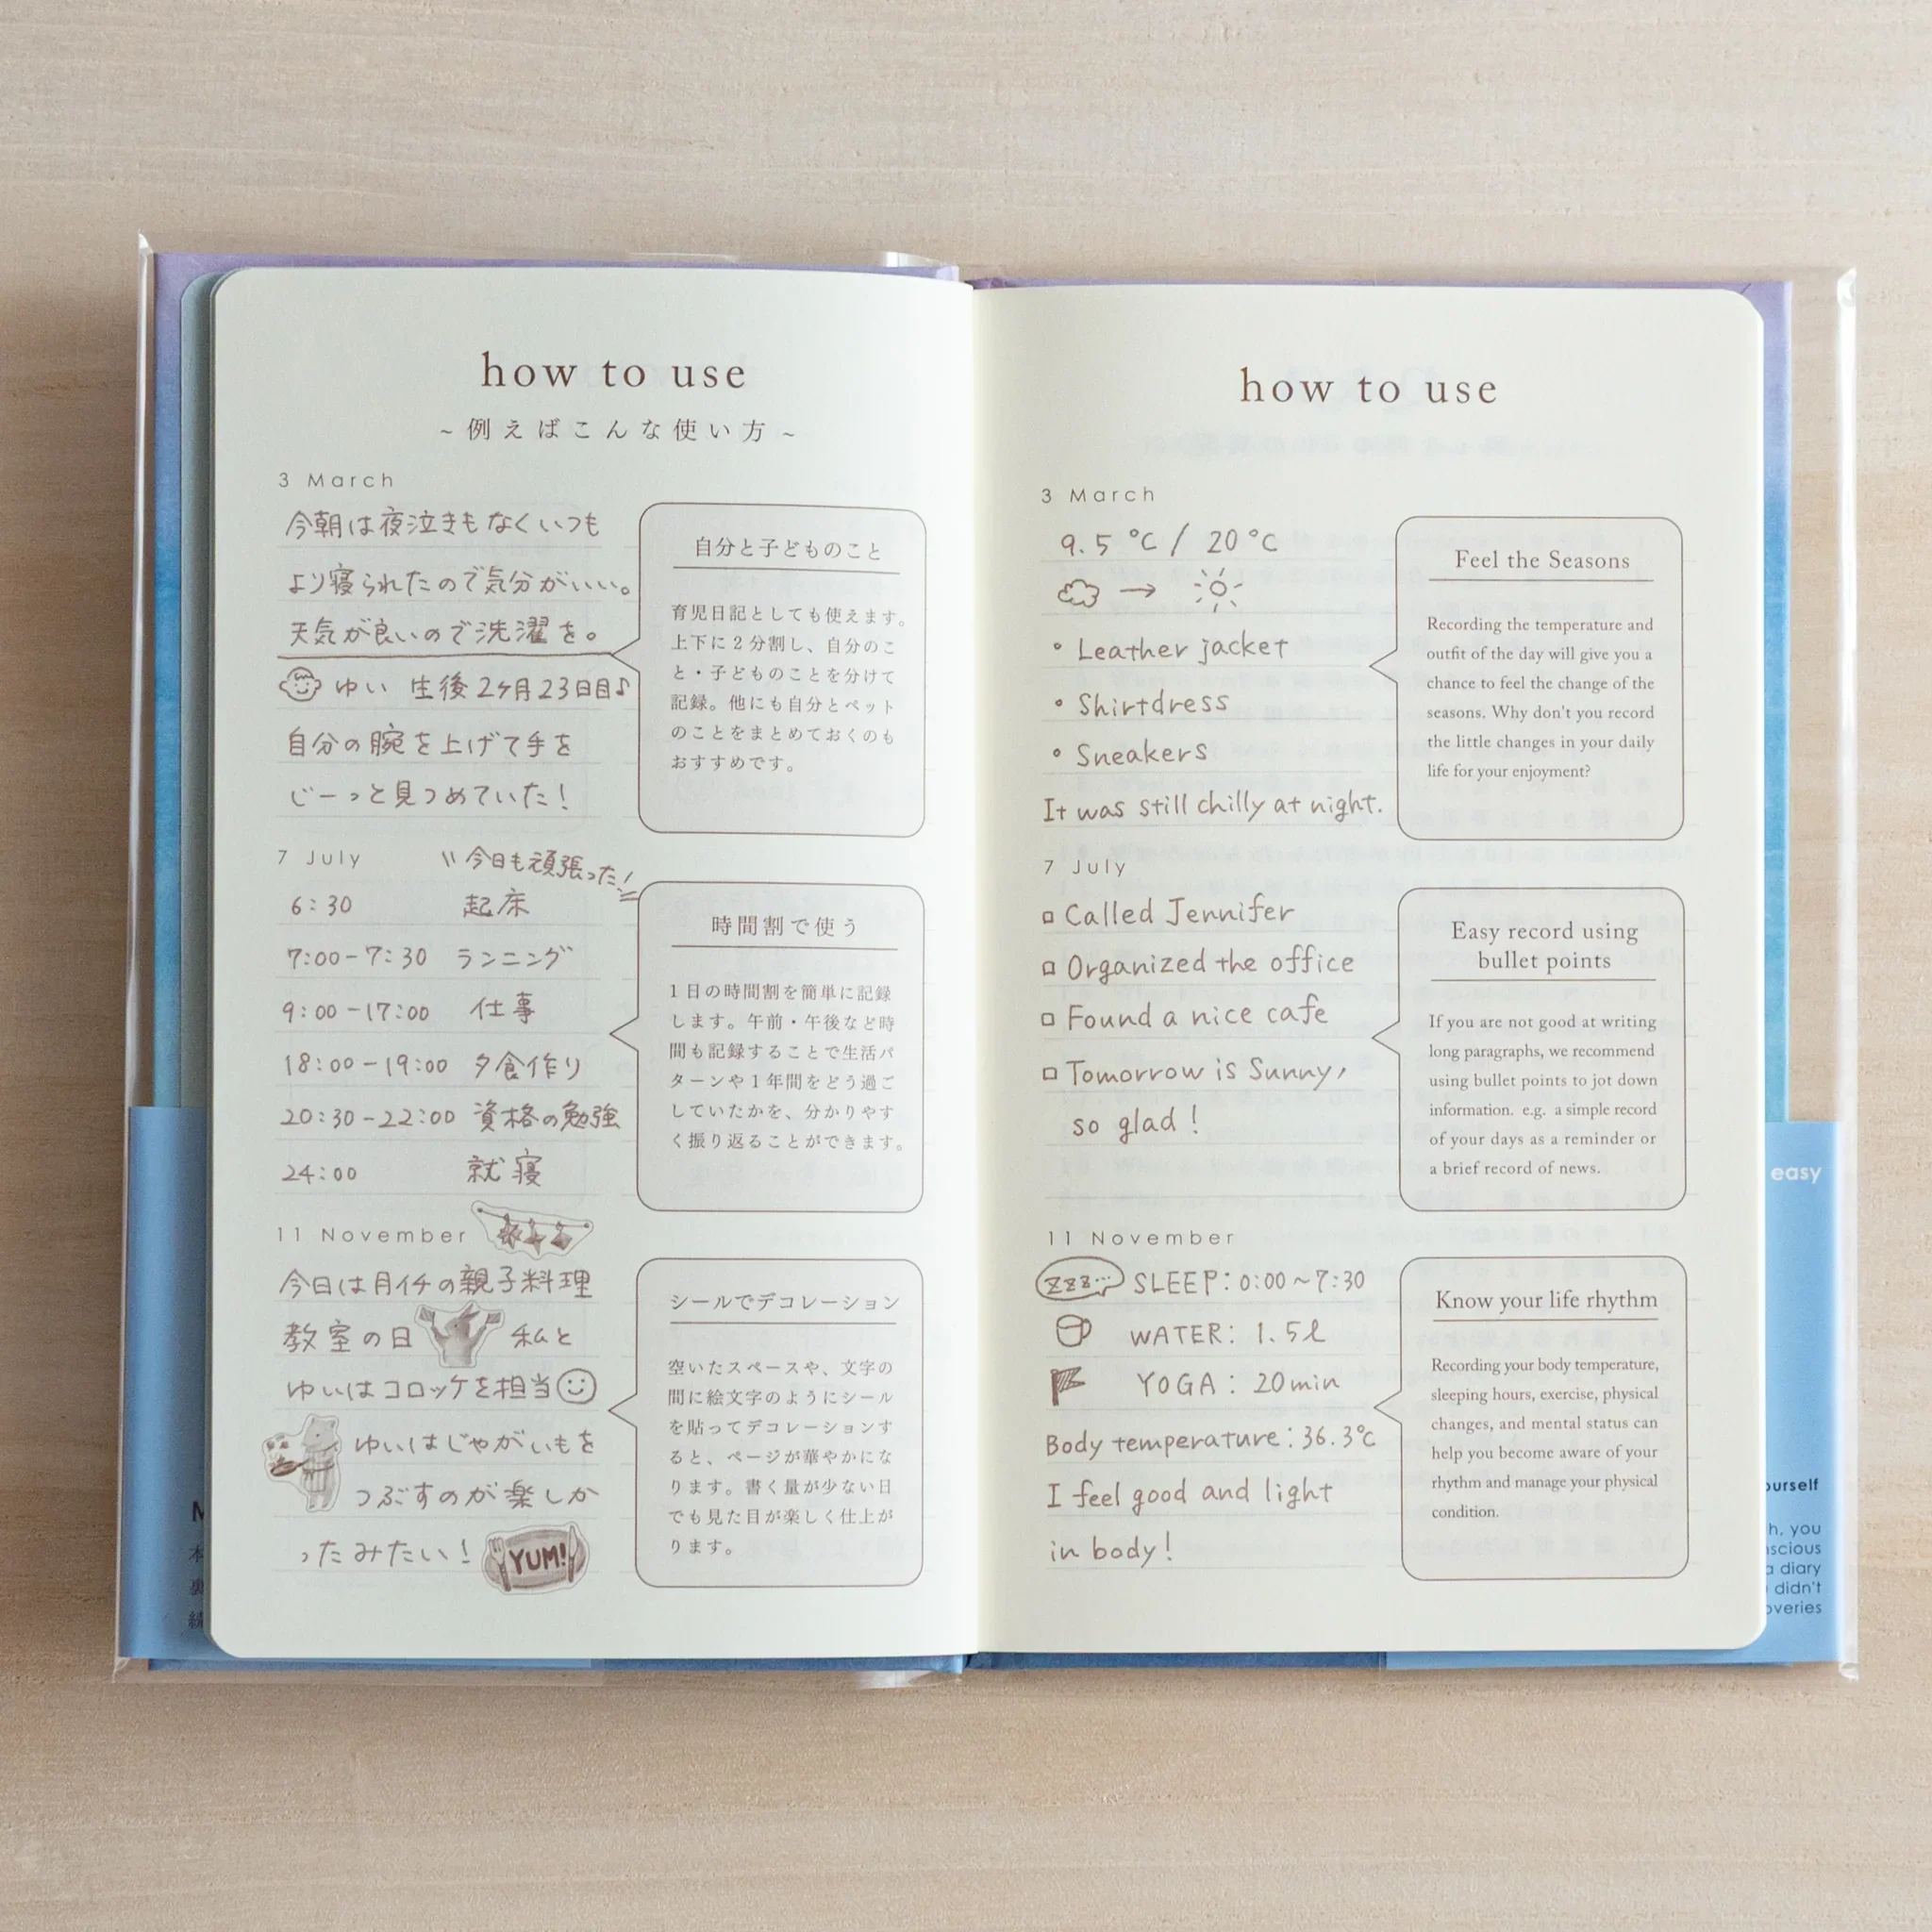 how to use
~例えばこんな使い方~
3 March
今朝は夜泣きもなくいつも
より寝られたので気分がいい。
天気が良いので洗濯を。
ゆい 生後2ヶ月23日目♪
自分の腕を上げて手を
じーっと見つめていた!
自分と子どものこと
育児日記としても使えます。
上下に2分割し、自分のこ
と・子どものことを分けて
記録。他にも自分とペット
のことをまとめておくのも
おすすめです。
7 July
今日も頑張った!
6:30 起床
7:00-7:30 ランニング
9:00-17:00 仕事
18:00-19:00 夕食作り
20:30-22:00 資格の勉強
24:00 就寝
時間割で使う
1日の時間割を簡単に記録
します。午前・午後など時
間も記録することで生活パ
ターンや1年間をどう過ご
していたかを、分かりやす
く振り返ることができます。
11 November
今日は月イチの親子料理
教室の日 私と
ゆいはコロッケを担当
ゆいはじゃがいもを
つぶすのが楽しか
ったみたい!
YUM!
シールでデコレーション
空いたスペースや、文字の
間に絵文字のようにシール
を貼ってデコレーションす
ると、ページが華やかにな
ります。書く量が少ない日
でも見た目が楽しく仕上が
ります。
how to use
3 March
9.5 °C / 20 °C
→
• Leather jacket
• Shirtdress
• Sneakers
It was still chilly at night.
Feel the Seasons
Recording the temperature and
outfit of the day will give you a
chance to feel the change of the
seasons. Why don't you record
the little changes in your daily
life for your enjoyment?
7 July
□ Called Jennifer
□ Organized the office
□ Found a nice cafe
□ Tomorrow is Sunny,
so glad!
Easy record using
bullet points
If you are not good at writing
long paragraphs, we recommend
using bullet points to jot down
information. e.g. a simple record
of your days as a reminder or
a brief record of news.
11 November
zzz... SLEEP: 0:00~7:30
WATER: 1.5ℓ
YOGA: 20min
Body temperature: 36.3℃
I feel good and light
in body!
Know your life rhythm
Recording your body temperature,
sleeping hours, exercise, physical
changes, and mental status can
help you become aware of your
rhythm and manage your physical
condition.
easy
h, you
a diary
didn't